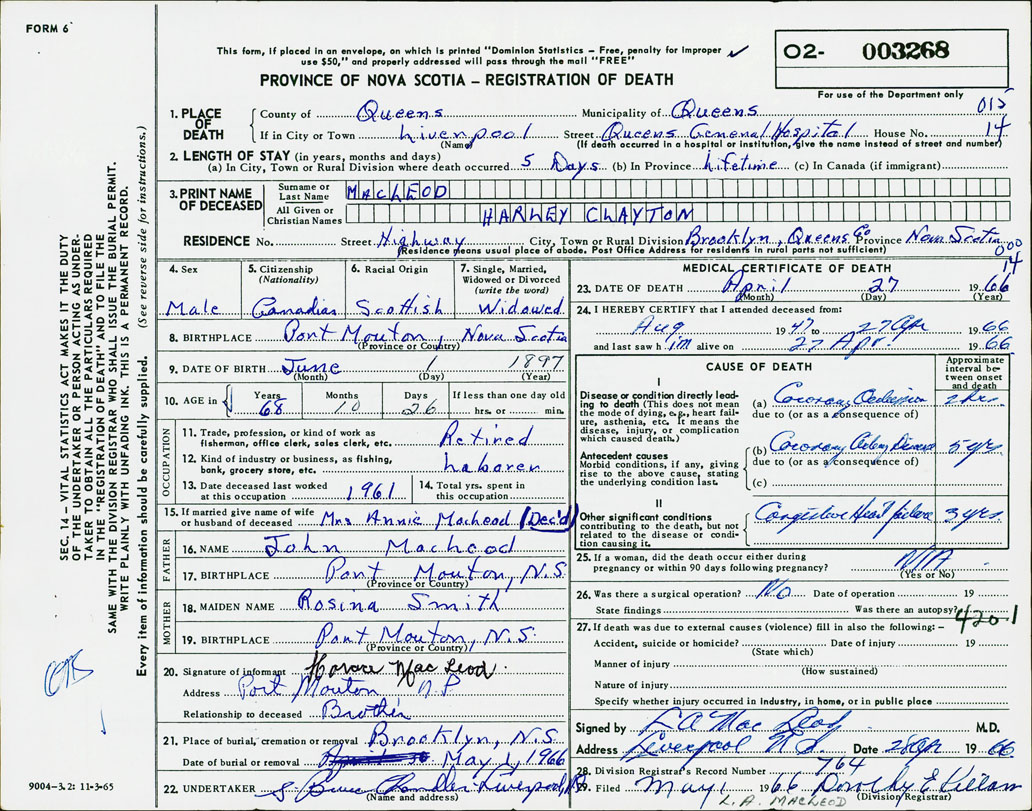 FORM 6
This form, if placed in an envelope, on which is printed "Dominion Statistics – Free, penalty for improper
use $50," and properly addressed will pass through the mail "FREE"
PROVINCE OF NOVA SCOTIA – REGISTRATION OF DEATH
02- 003268
For use of the Department only
015
1. PLACE OF DEATH County of Queens Municipality of Queens
If in City or Town Liverpool Street Queens General Hospital House No. 14
(Name) (If death occurred in a hospital or institution, give the name instead of street and number)
2. LENGTH OF STAY (in years, months and days)
(a) In City, Town or Rural Division where death occurred 5 Days (b) In Province Lifetime (c) In Canada (if immigrant)
3. PRINT NAME OF DECEASED
Surname or Last Name MACLEOD
All Given or Christian Names HARLEY CLAYTON
RESIDENCE No. Street Highway City, Town or Rural Division Brooklyn, Queens Co Province Nova Scotia
(Residence means usual place of abode. Post Office Address for residents in rural parts not sufficient)
000
14
4. Sex Male
5. Citizenship (Nationality) Canadian
6. Racial Origin Scottish
7. Single, Married, Widowed or Divorced (write the word) Widowed
8. BIRTHPLACE Port Mouton, Nova Scotia
(Province or Country)
9. DATE OF BIRTH June 1 1897
(Month) (Day) (Year)
10. AGE in Years 68 Months 10 Days 26 If less than one day old hrs. or min.
OCCUPATION
11. Trade, profession, or kind of work as fisherman, office clerk, sales clerk, etc. Retired
12. Kind of industry or business, as fishing, bank, grocery store, etc. Laborer
13. Date deceased last worked at this occupation 1961
14. Total yrs. spent in this occupation
15. If married give name of wife or husband of deceased Mrs Annie MacLeod (Dec'd)
FATHER
16. NAME John MacLeod
17. BIRTHPLACE Port Mouton, N.S.
(Province or Country)
MOTHER
18. MAIDEN NAME Rosina Smith
19. BIRTHPLACE Port Mouton, N.S.
(Province or Country)
20. Signature of informant Horace MacLeod.
Address Port Mouton N.S
Relationship to deceased Brother
21. Place of burial, cremation or removal Brooklyn, N.S.
Date of burial or removal May 1, 1966
22. UNDERTAKER Chandler Liverpool
(Name and address)
MEDICAL CERTIFICATE OF DEATH
23. DATE OF DEATH April 27 1966
(Month) (Day) (Year)
24. I HEREBY CERTIFY that I attended deceased from:
Aug 1947 to 27 Apr 1966
and last saw him alive on 27 Apr. 1966
CAUSE OF DEATH
Approximate interval between onset and death
I
Disease or condition directly leading to death (This does not mean the mode of dying, e.g., heart failure, asthenia, etc. It means the disease, injury, or complication which caused death.)
(a) Coronary Occlusion 2 hrs.
due to (or as a consequence of)
Antecedent causes
Morbid conditions, if any, giving rise to the above cause, stating the underlying condition last.
(b) Coronary Artery Disease 5 yrs
due to (or as a consequence of)
(c)
II
Other significant conditions
contributing to the death, but not related to the disease or condition causing it.
Congestive Heart failure 3 yrs
25. If a woman, did the death occur either during pregnancy or within 90 days following pregnancy? N/A
(Yes or No)
26. Was there a surgical operation? No Date of operation 19
State findings Was there an autopsy?
420.1
27. If death was due to external causes (violence) fill in also the following: –
Accident, suicide or homicide? Date of injury 19
(State which)
Manner of injury
(How sustained)
Nature of injury
Specify whether injury occurred in industry, in home, or in public place
Signed by L A MacLeod M.D.
Address Liverpool N.S. Date 28 Apr 1966
28. Division Registrar's Record Number 764
29. Filed May 1 1966 Dorothy E Killam
(Division Registrar)
L. A. MACLEOD
SEC. 14 – VITAL STATISTICS ACT MAKES IT THE DUTY
OF THE UNDERTAKER OR PERSON ACTING AS UNDER-
TAKER TO OBTAIN ALL THE PARTICULARS REQUIRED
IN THE "REGISTRATION OF DEATH" AND TO FILE THE
SAME WITH THE DIVISION REGISTRAR WHO SHALL ISSUE THE BURIAL PERMIT.
WRITE PLAINLY WITH UNFADING INK. THIS IS A PERMANENT RECORD.
Every item of information should be carefully supplied. (See reverse side for instructions.)
9004-3.2: 11-3-65